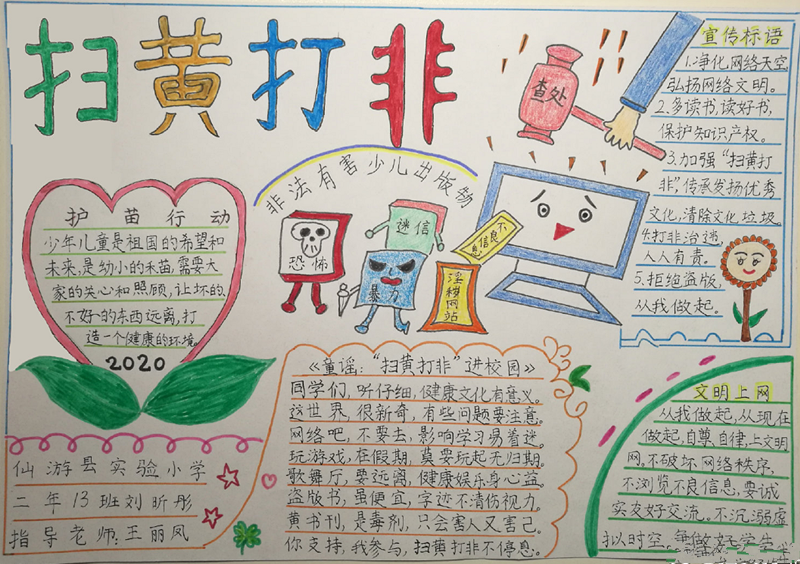 扫黄打非
宣传标语
1.净化网络天空,
弘扬网络文明。
2.多读书,读好书,
保护知识产权。
3.加强“扫黄打
非”传承发扬优秀
文化,清除文化垃圾
4.打非治违,
人人有责。
5.拒绝盗版,
从我做起。
查处
非法有害少儿出版物
恐怖
迷信
暴力
不良信息
淫秽网站
护苗行动
少年儿童是祖国的希望和
未来,是幼小的禾苗,需要大
家的关心和照顾,让坏的、
不好的东西远离,打
造一个健康的环境。
2020
《童谣:“扫黄打非”进校园》
同学们,听仔细,健康文化有意义。
这世界,很新奇,有些问题要注意。
网络吧,不要去,影响学习易着迷。
玩游戏,在假期,莫要玩起无归期。
歌舞厅,要远离,健康娱乐身心益。
盗版书,虽便宜,字迹不清伤视力。
黄书刊,是毒剂,只会害人又害己。
你支持,我参与,扫黄打非不停息。
文明上网
从我做起,从现在
做起,自尊自律,上文明
网。不破坏网络秩序,
不浏览不良信息,要诚
实友好交流。不沉溺虚
拟时空,争做好学生
仙游县实验小学
二年13班刘昕彤
指导老师:王丽凤